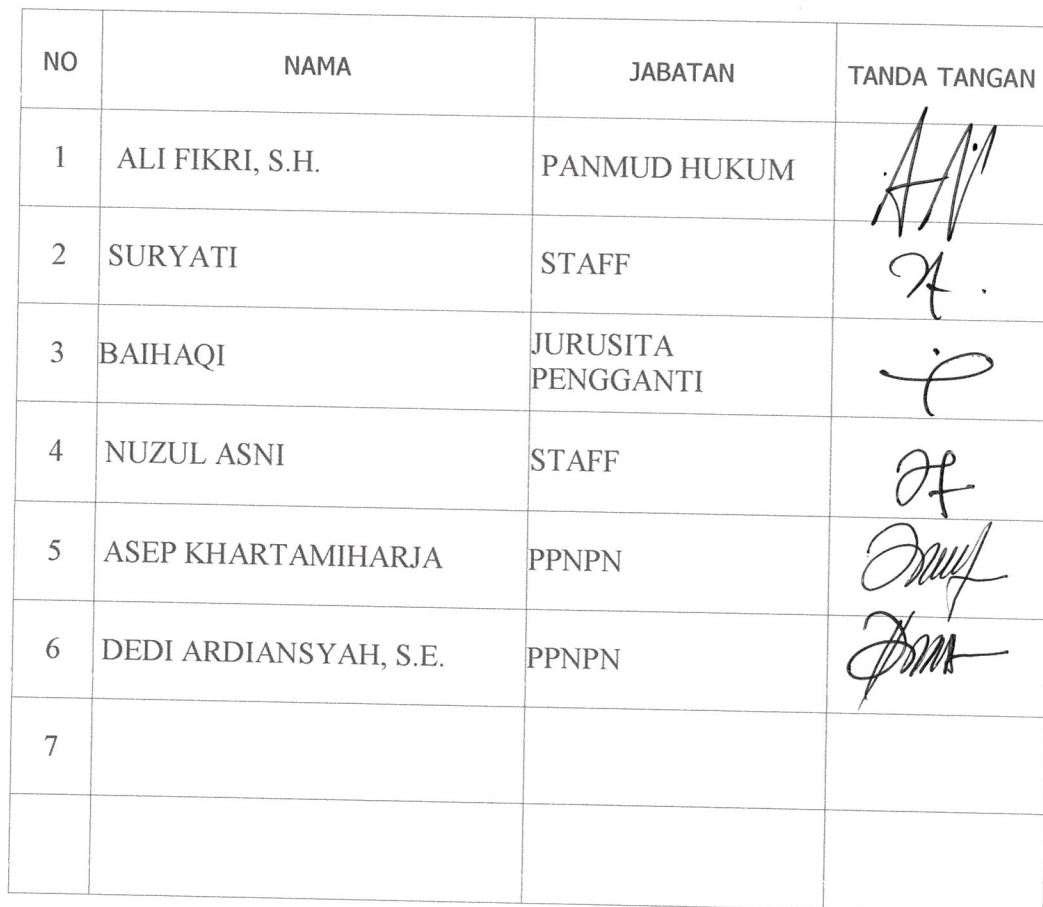 NO NAMA JABATAN TANDA TANGAN
1 ALI FIKRI, S.H. PANMUD HUKUM
2 SURYATI STAFF
3 BAIHAQI JURUSITA
PENGGANTI
4 NUZUL ASNI STAFF
5 ASEP KHARTAMIHARJA PPNPN
6 DEDI ARDIANSYAH, S.E. PPNPN
7